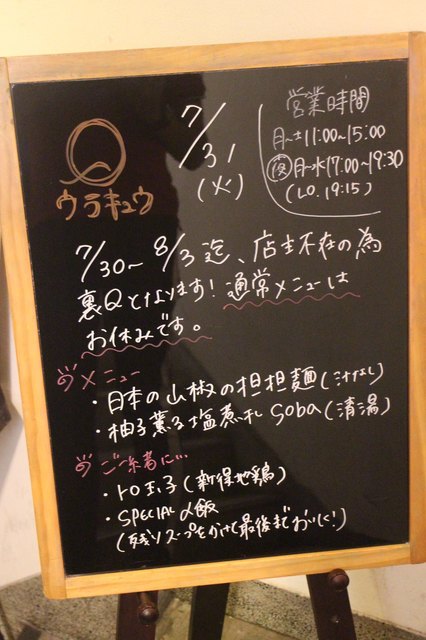 Q
ウラキュウ
7/31
(火)
営業時間
月〜土 11:00〜15:00
夜 月〜水 17:00〜19:30
(L.O. 19:15)
7/30〜8/3迄、店主不在の為
裏Qとなります!通常メニューは
お休みです。
メニュー
・日本の山椒の担担麺(汁なし)
・柚子薫る塩煮干し Soba(清湯)
ご一緒に…
・トロ玉子(新得地鶏)
・SPECIAL〆飯
(残りスープをかけて最後までおいしく!)